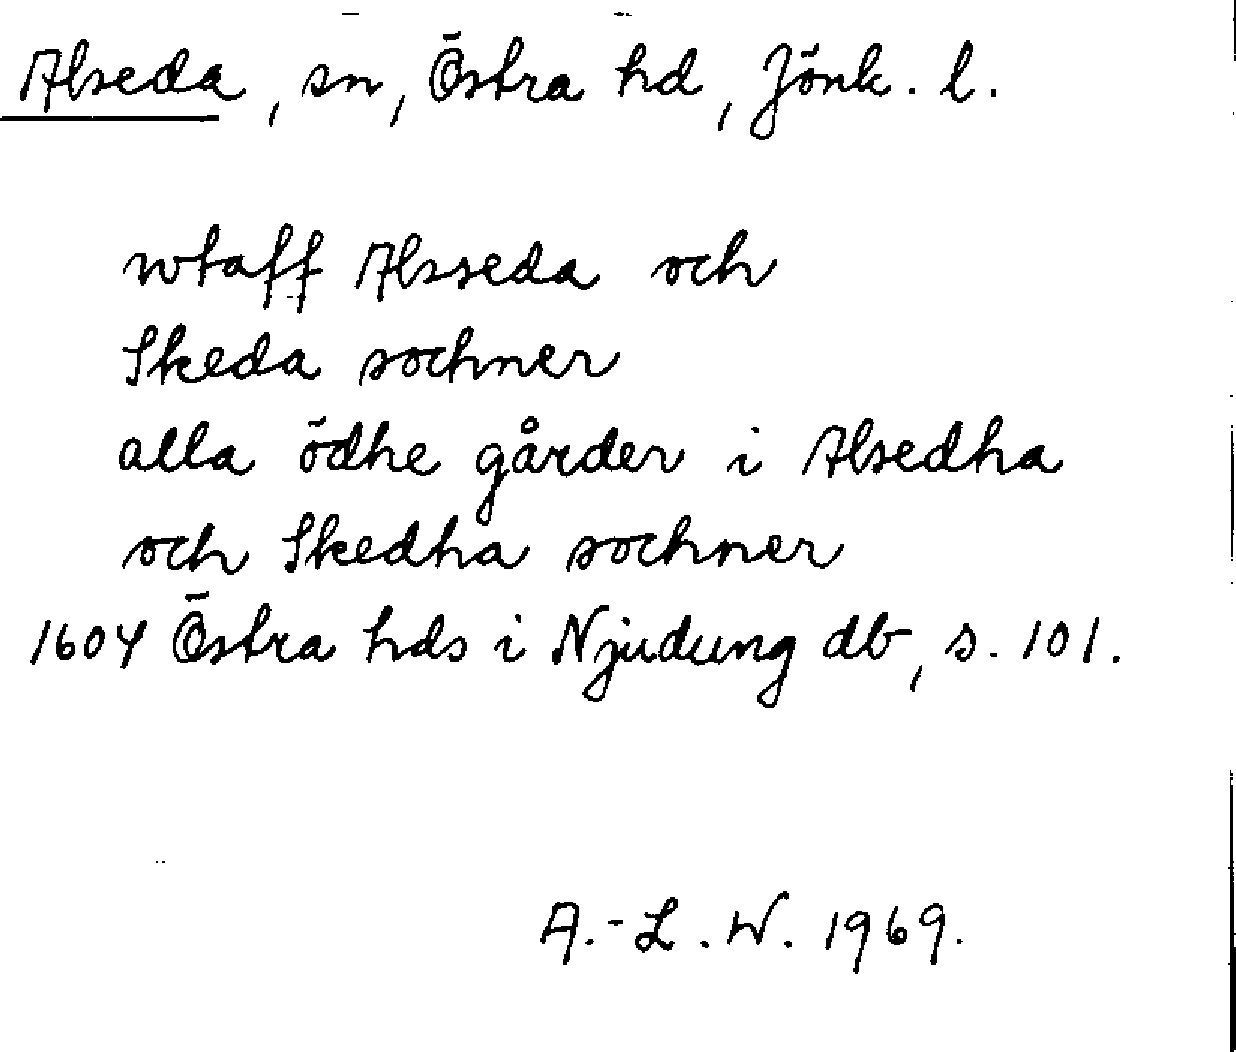 Alseda, sn, Östra hd, Jönk. l.
wtaff Alsseda och
Skeda sochner
alla ödhe gårder i Alsedha
och Skedha sochner
1604 Östra hds i Njudung db, s. 101.
A.-L.W. 1969.